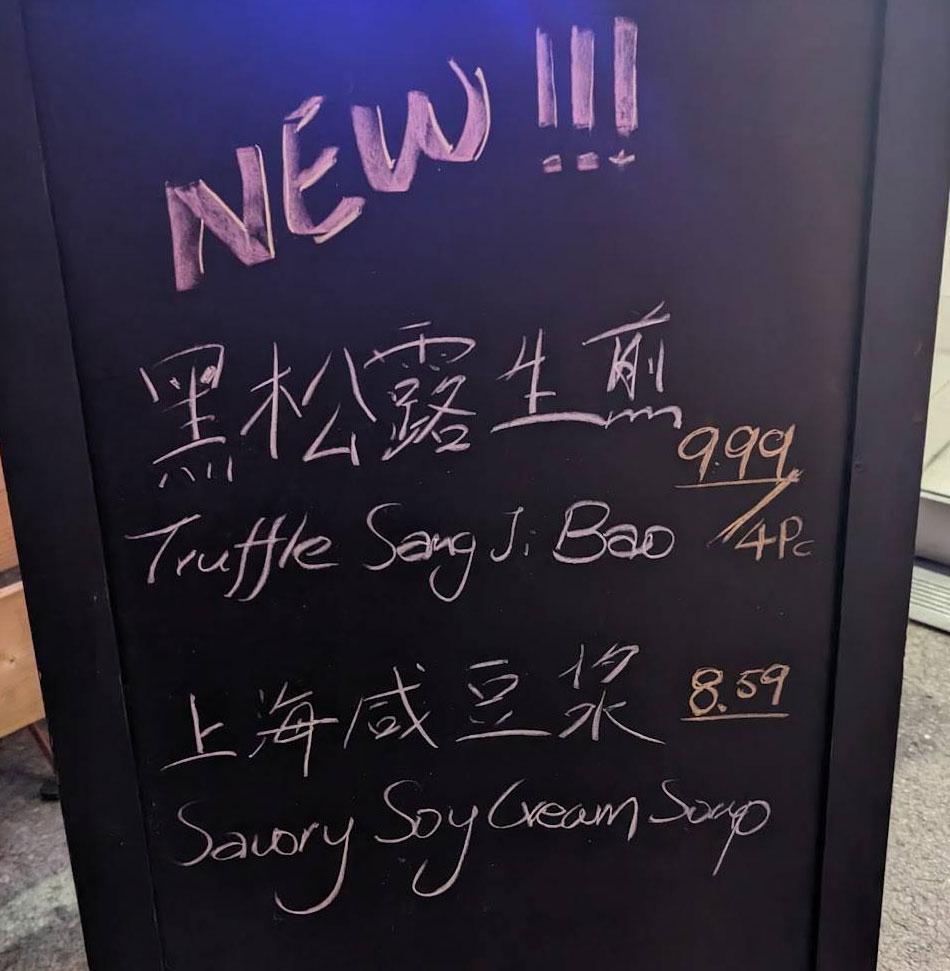 NEW!!!
黑松露生煎
9.99/4Pc
Truffle Sang Ji Bao
上海咸豆浆 8.59
Savory Soy Cream Soup